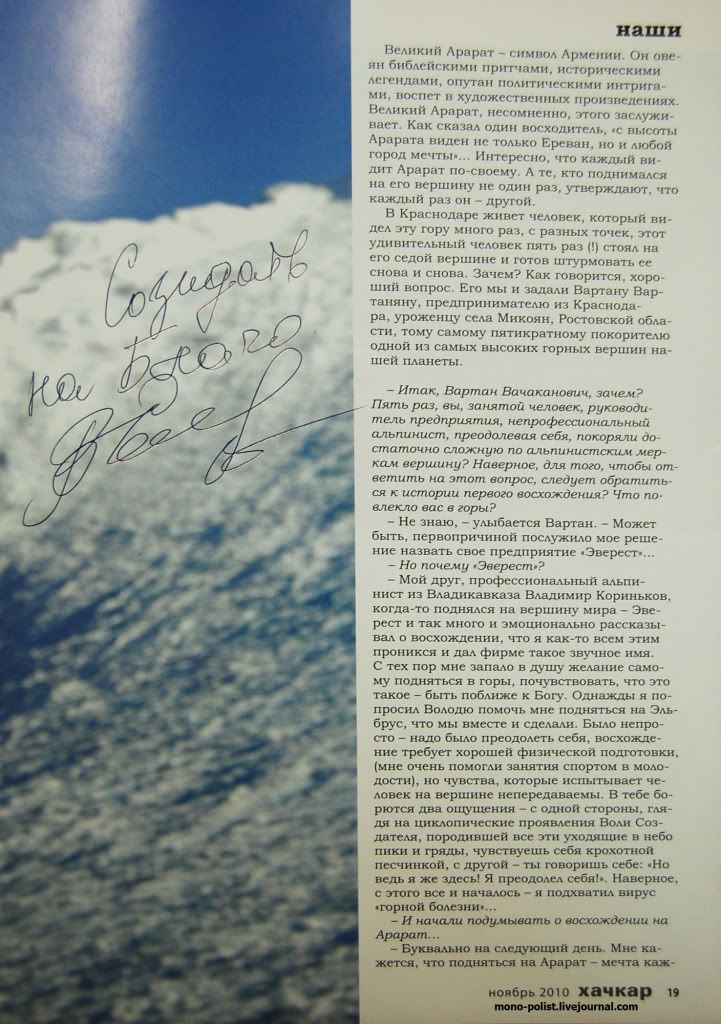 наши
Великий Арарат – символ Армении. Он ове-
ян библейскими притчами, историческими
легендами, опутан политическими интрига-
ми, воспет в художественных произведениях.
Великий Арарат, несомненно, этого заслужи-
вает. Как сказал один восходитель, «с высоты
Арарата виден не только Ереван, но и любой
город мечты»... Интересно, что каждый ви-
дит Арарат по-своему. А те, кто поднимался
на его вершину не один раз, утверждают, что
каждый раз он – другой.
В Краснодаре живет человек, который ви-
дел эту гору много раз, с разных точек, этот
удивительный человек пять раз (!) стоял на
его седой вершине и готов штурмовать ее
снова и снова. Зачем? Как говорится, хоро-
ший вопрос. Его мы и задали Вартану Вар-
таняну, предпринимателю из Краснода-
ра, уроженцу села Микоян, Ростовской обла-
сти, тому самому пятикратному покорителю
одной из самых высоких горных вершин на-
шей планеты.
– Итак, Вартан Вачаканович, зачем?
Пять раз, вы, занятой человек, руководи-
тель предприятия, непрофессиональный
альпинист, преодолевая себя, покоряли до-
статочно сложную по альпинистским мер-
кам вершину? Наверное, для того, чтобы от-
ветить на этот вопрос, следует обратить-
ся к истории первого восхождения? Что по-
влекло вас в горы?
– Не знаю, – улыбается Вартан. – Может
быть, первопричиной послужило мое реше-
ние назвать свое предприятие «Эверест»...
– Но почему «Эверест»?
– Мой друг, профессиональный альпи-
нист из Владикавказа Владимир Кориньков,
когда-то поднялся на вершину мира – Эве-
рест и так много и эмоционально рассказы-
вал о восхождении, что я как-то всем этим
проникся и дал фирме такое звучное имя.
С тех пор мне запало в душу желание само-
му подняться в горы, почувствовать, что это
такое – быть поближе к Богу. Однажды я по-
просил Володю помочь мне подняться на Эль-
брус, что мы вместе и сделали. Было непро-
сто – надо было преодолеть себя, восхожде-
ние требует хорошей физической подготовки,
(мне очень помогли занятия спортом в моло-
дости), но чувства, которые испытывает че-
ловек на вершине непередаваемы. В тебе бо-
рются два ощущения – с одной стороны, гля-
дя на циклопические проявления Воли Соз-
дателя, породившей все эти уходящие в небо
пики и гряды, чувствуешь себя крохотной
песчинкой, с другой – ты говоришь себе: «Но
ведь я же здесь! Я преодолел себя!». Наверное,
с этого все и началось – я подхватил вирус
«горной болезни»...
– И начали подумывать о восхождении на
Арарат...
– Буквально на следующий день. Мне ка-
жется, что подняться на Арарат – мечта каж-
Созидать
на благо.
ноябрь 2010 хачкар 19
mono-polist.livejournal.com